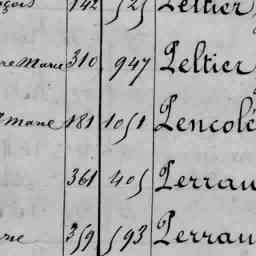 142 525 Peltier
Marie 310 947 Peltier
181 1051 Pencolé
361 405 Perrau
359 593 Perrau